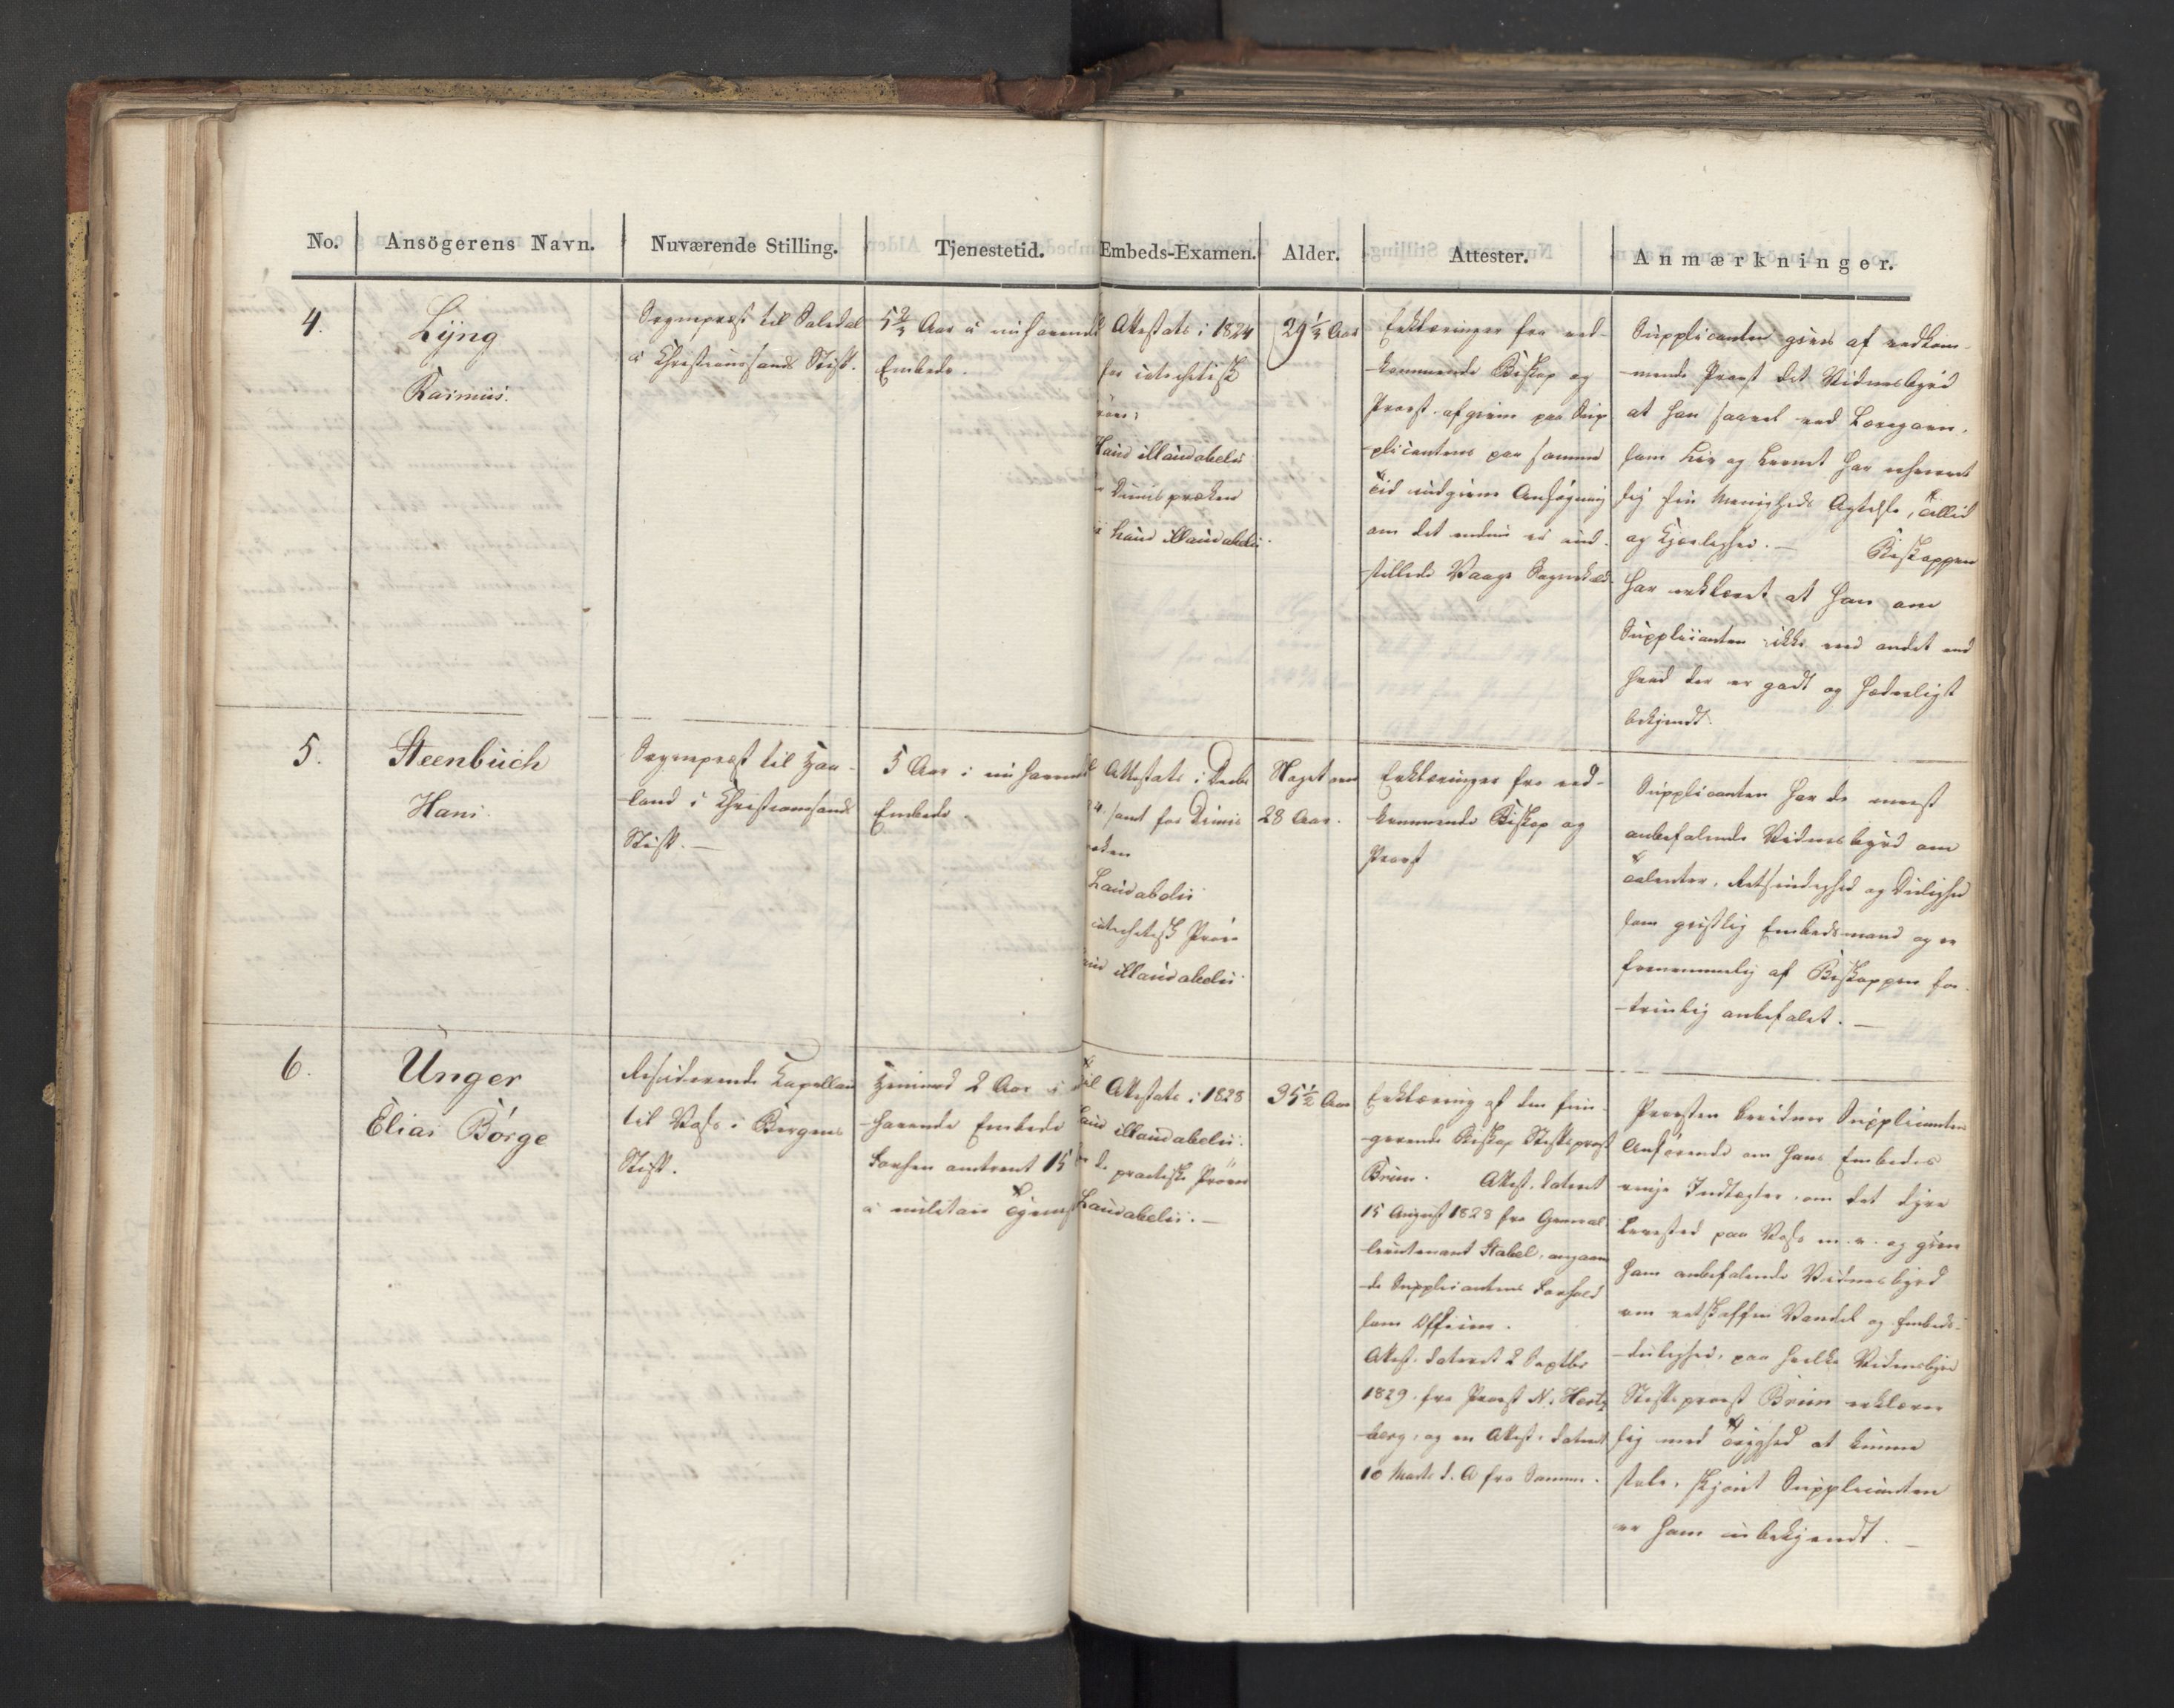 No. Ansögerens Navn. Nuværende Stilling. Tjenestetid. Embeds-Examen. Alder. Attester. Anmærkninger.
4.
Lyng
Rasmus.
Sognepræst til
i Christianssands Stift.
5 2/3 Aar i nu havende
Embede.
Attestats i 1824
for catechetisk
Haud illaudabilis
Dimispræken
haud illaudabilis.
29 1/3 Aar
Erklæringer fra ved-
kommende Biskop og
Provst afgivne paa Sup
plicantens paa samme
Tid indgivne Ansøgning
om det endnu ei
Vaage Sognekald
Supplicanten gives af vedkom-
mende Provst det Vidnesbyrd
at han saavel ved Læregaver,
som Liv og Levnet har erhvervet
sig sin Menigheds Agtelse, Tillid
og Kjærlighed. — Biskoppen
har erklæret at han om
Supplicanten ikke ved andet end
hvad der er godt og hæderligt
bekjendt.
5.
Steenbuch
Hans.
Sognepræst til Haa-
land i Christianssands
Stift. —
5 Aar i nu havende
Embede.
Attestats i Decbr
24. samt for Dimis
Laudabilis
catechetisk Prøve
illaudabilis
Noget over
28 Aar.
Erklæringer fra ved-
kommende Biskop og
Provst
Supplicanten har de meest
anbefalende Vidnesbyrd om
Talenter, Retsindighed og Duelighed
som geistlig Embedsmand og er
fornemmelig af Biskoppen for-
trinlig anbefalet. —
6.
Unger
Elias Börge
Residerende Kapellan
til Voss i Bergens
Stift.
2 Aar i nu
havende Embede
Forhen omtrent 15
i militair Tjeneste
Attestats i 1828
Haud illaudabilis.
de practiske Prøver
Laudabilis. —
35 1/2 Aar
Erklæring af den fun-
gerende Biskop Stiftsprovst
Bruun. Attest dateret
15 August 1828 fra General-
lieutenant Stabel, angaaen
de Supplicantens Forhold
som Officier.
Attest dateret 2 Septbr
1829 fra Provst N. Hertz
berg, og en Attest dateret
10 Marts d. A fra Samme.
Provsten bevidner Supplicantens
Anførende om hans Embedes
ringe Indtægter, om det dyre
Levested paa Voss m. v. og giver
ham anbefalende Vidnesbyrd
om retskaffen Vandel og Embeds-
duelighed, paa hvilke Vidnesbyrd
Stiftsprovst Bruun erklærer
sig med Tryghed at kunne
stole, skjønt Supplicanten
er ham ubekjendt. —